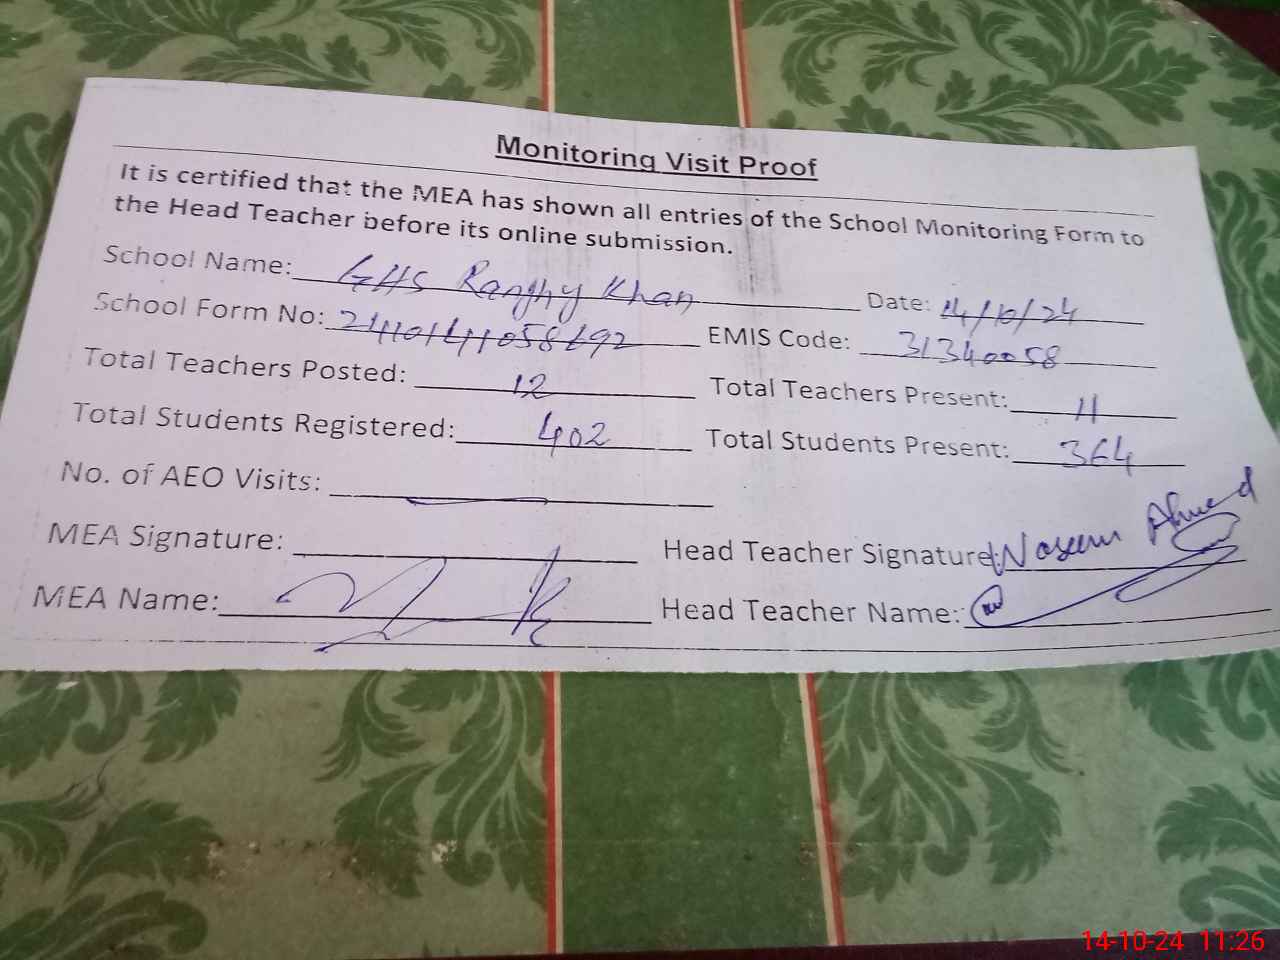 Monitoring Visit Proof
It is certified that the MEA has shown all entries of the School Monitoring Form to
the Head Teacher before its online submission.
School Name: GHS Ranjhy Khan Date: 14/10/24
School Form No: EMIS Code: 31340058
Total Teachers Posted: 12 Total Teachers Present: 11
Total Students Registered: 402 Total Students Present: 364
No. of AEO Visits: —
MEA Signature: Head Teacher Signature: Naseem Ahmed
MEA Name: Head Teacher Name:
14-10-24 11:26